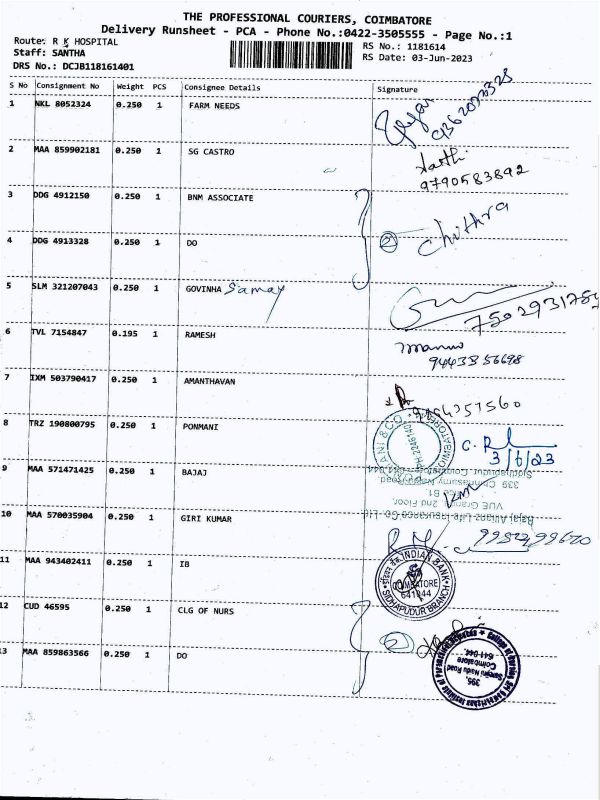 THE PROFESSIONAL COURIERS, COIMBATORE
Delivery Runsheet - PCA - Phone No.:0422-3505555 - Page No.:1
Route: R K HOSPITAL
RS No.: 1181614
Staff: SANTHA
RS Date: 03-Jun-2023
DRS No.: DCJB118161401
S No Consignment No Weight PCS Consignee Details Signature
1 NKL 8052324 0.250 1 FARM NEEDS
2 MAA 859902181 0.250 1 SG CASTRO
9790583892
3 DDG 4912150 0.250 1 BNM ASSOCIATE
4 DDG 4913328 0.250 1 DO ② Chithra
5 SLM 321207043 0.250 1 GOVINHA Samay
6 TVL 7154847 0.195 1 RAMESH
7 IXM 503790417 0.250 1 AMANTHAVAN
8 TRZ 190800795 0.250 1 PONMANI
3/6/23
9 MAA 571471425 0.250 1 BAJAJ
Bajaj Allianz Life Insurance Co. Ltd.
VUE Grande, 2nd Floor,
10 MAA 570035904 0.250 1 GIRI KUMAR
11 MAA 943402411 0.250 1 IB
INDIAN BANK
COIMBATORE
641044
SIDHAPUDUR BRANCH
12 CUD 46595 0.250 1 CLG OF NURS ②
13 MAA 859863566 0.250 1 DO
395,
Coimbatore
641 044.